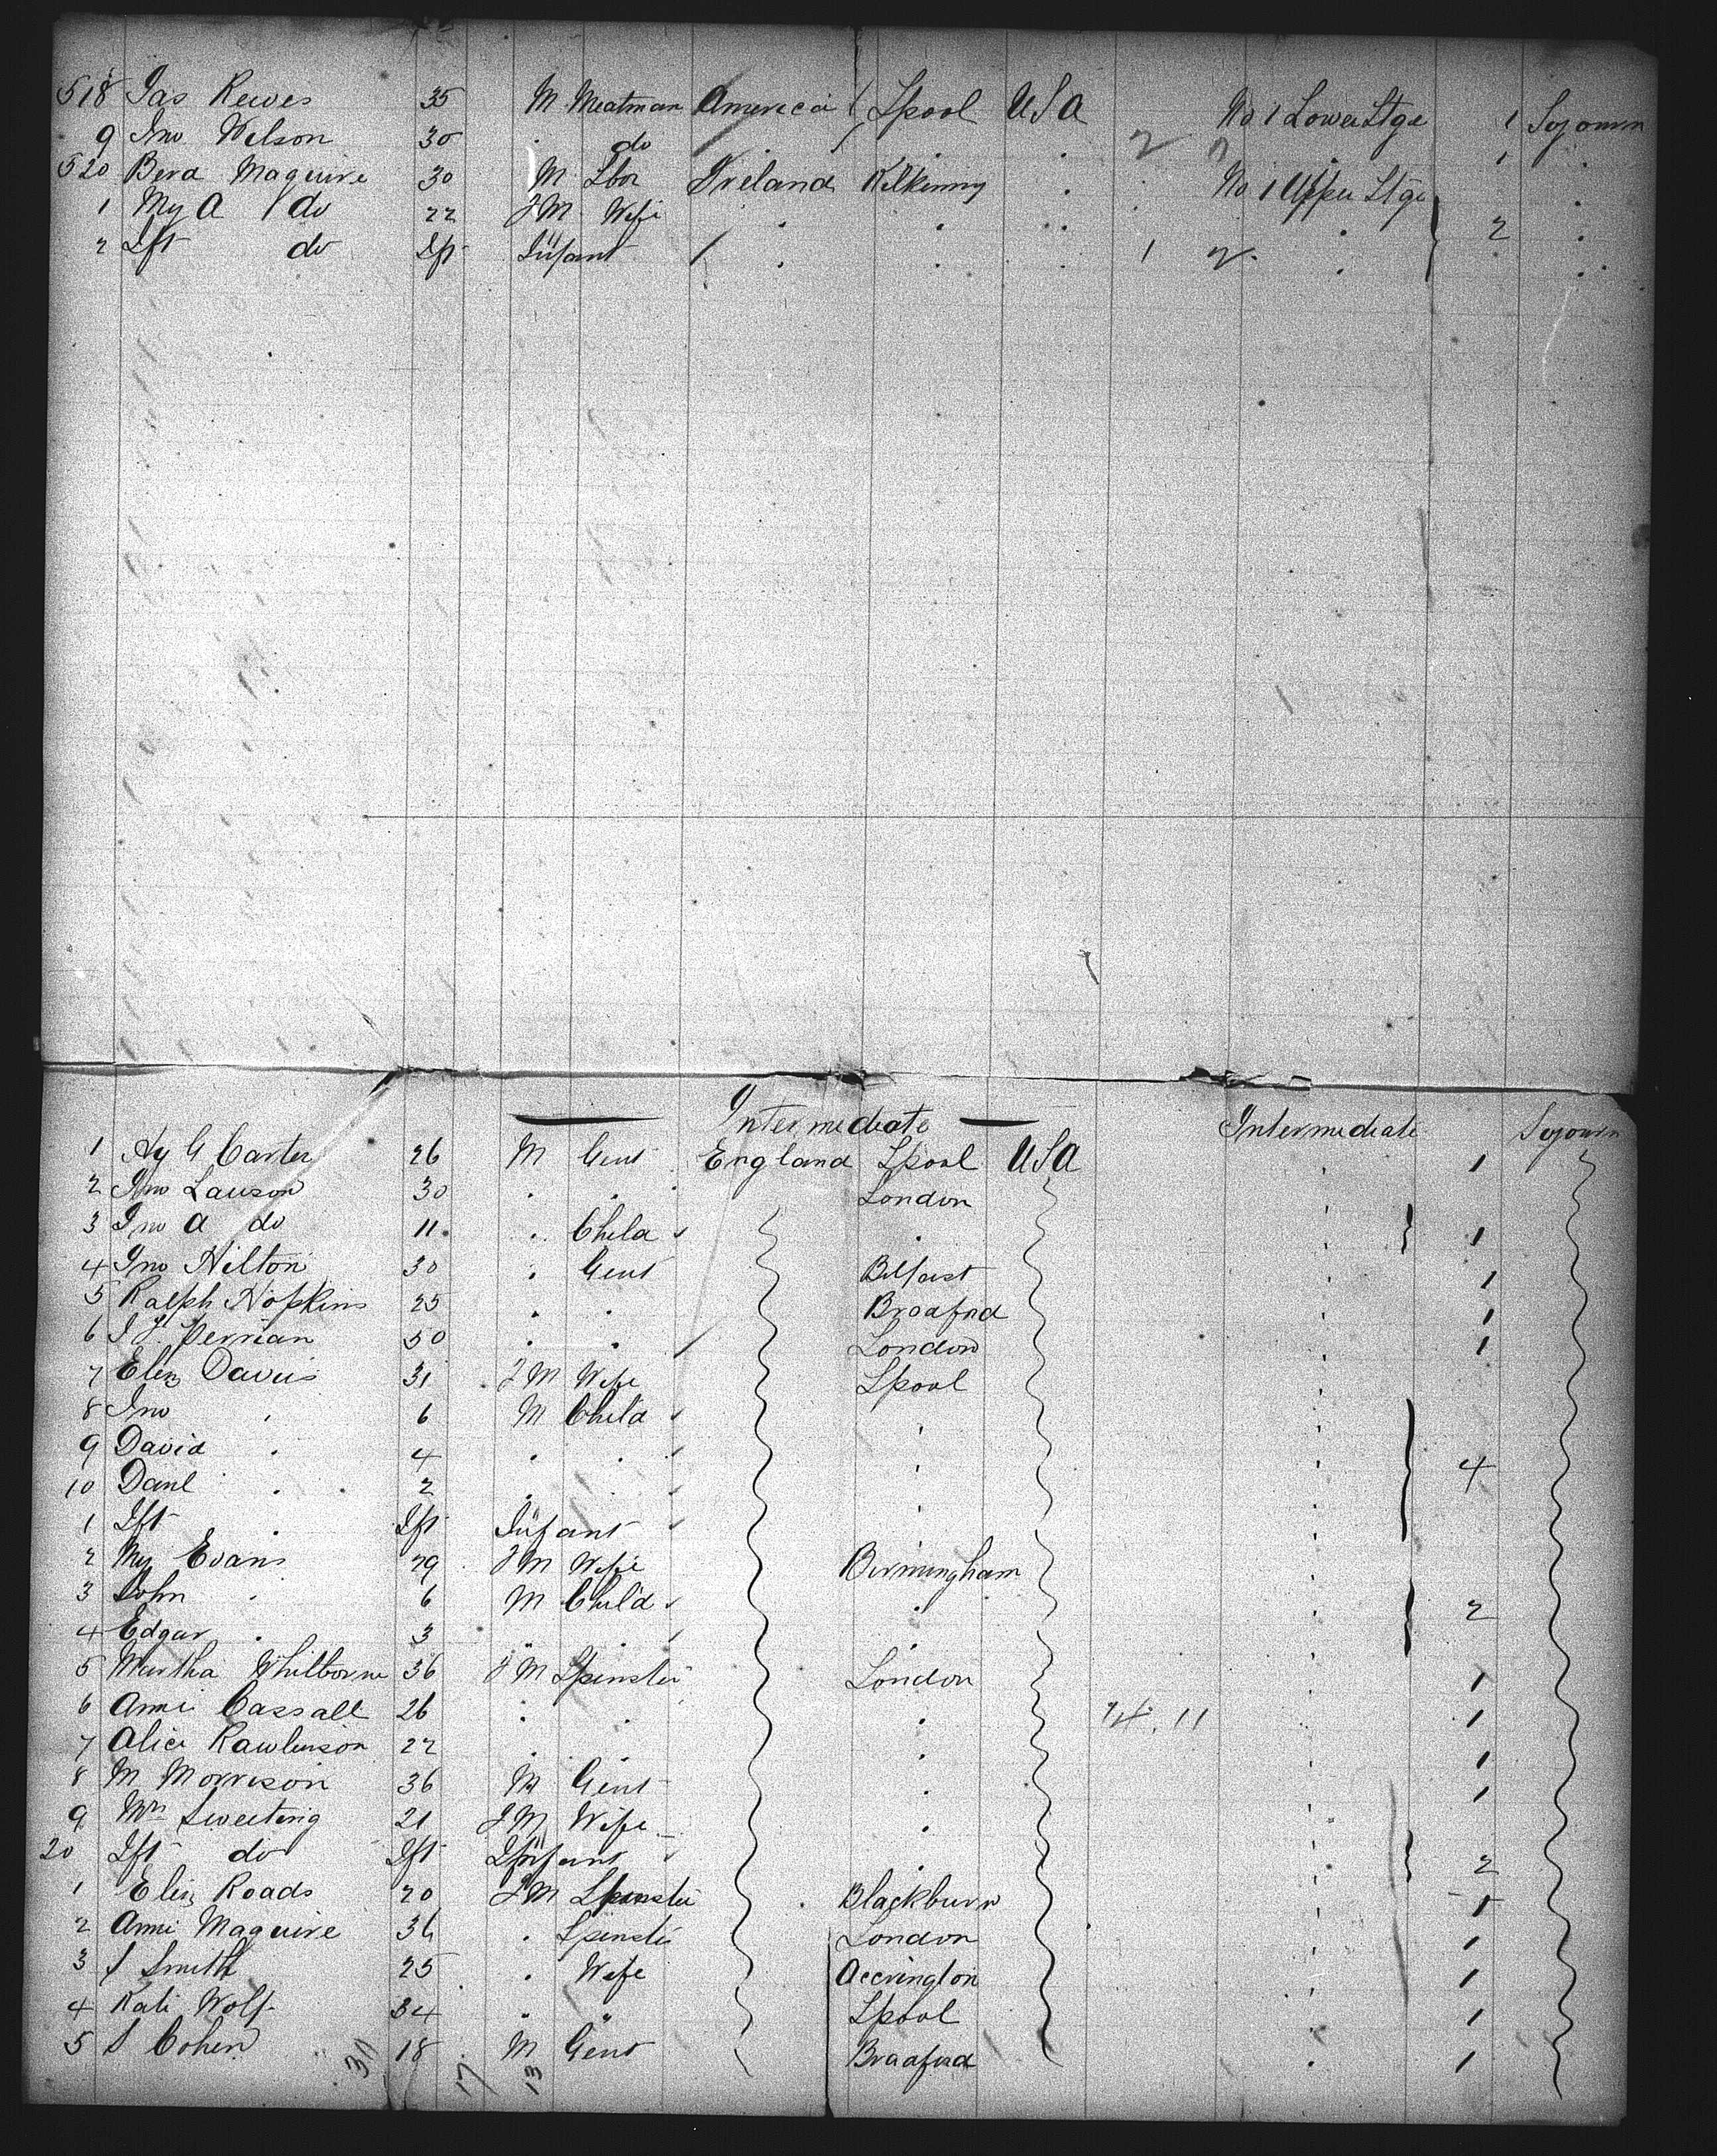 518 Jas Reeves 35 M Meatman America Lpool USA No 1 Lower Stge 1 Sojourn
9 Jno Wilson 30 . do . . 2 " 1 .
520 Maguire 30 M Lbr Ireland Kilkenny . . No 1 Upper Stge .
1 My A do 22 FM Wife . . . . . 2 .
2 Ift do Ift Infant . . . 1 2 . .
Intermediate Intermediate Sojourn
1 Hy G Carter 26 M Gent England Lpool USA 1
2 Jno Lawson 30 . . . London
3 Jno A do 11 . Child . 1
4 Jno Hilton 30 . Gent Belfast 1
5 Ralph Hopkins 25 . . Bradford 1
6 Perrian 50 . . London 1
7 Eliz Davies 31 FM Wife Lpool
8 Jno . 6 M Child "
9 David . 4 . . " 4
10 Danl . 2 . . "
1 Ift . Ift Infant "
2 My Evans 29 FM Wife Birmingham
3 John . 6 M Child . 2
4 Edgar . 3 " . .
5 Martha Whilborne 36 FM Spinster London 1
6 Annie Cassall 26 . . . 14. 11 1
7 Alice Rawlinson 22 . . . 1
8 M Morrison 36 M Gent . 1
9 Mrs Sweeting 21 FM Wife .
20 Ift do Ift Infant . 2
1 Eliz Roads 20 FM Spinster Blackburn 1
2 Annie Maguire 36 . Spinster London 1
3 S Smith 25 . Wife Accrington 1
4 Kate Wolf 34 . " Lpool 1
5 S Cohen 18 M Gent Bradford 1
17 13